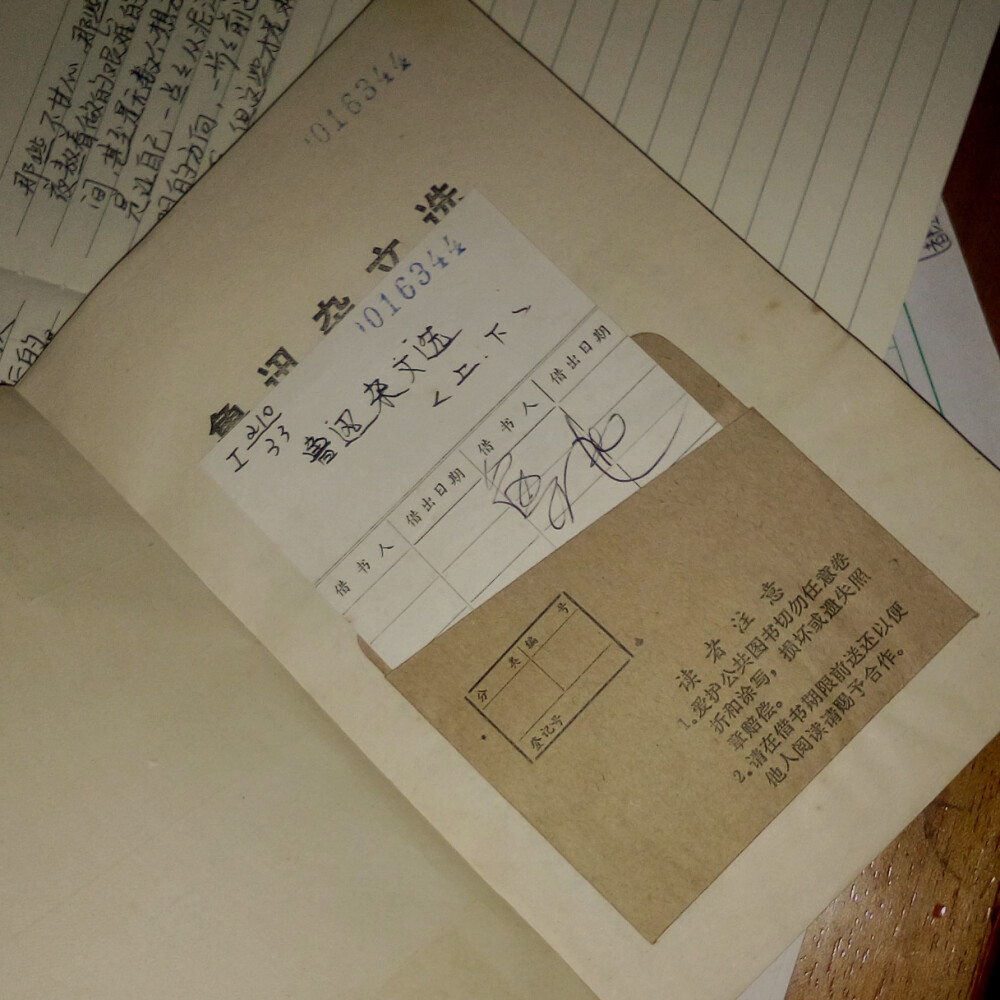 那些不甘心,那些
夜熬着做的艰难的
间,甚至是无数个想
是让自己一点点从泥
明的方向,一步步前
但这些才是
后的
1016344
鲁迅杂文选
1016344
I·210
33
鲁迅杂文选
<上.下>
借书人 借出日期 借书人 借出日期
分类 编号
登记号
读者注意
1.爱护公共图书切勿任意卷
折和涂写,损坏或遗失照
章赔偿。
2.请在借书期限前送还以便
他人阅读请赐予合作。